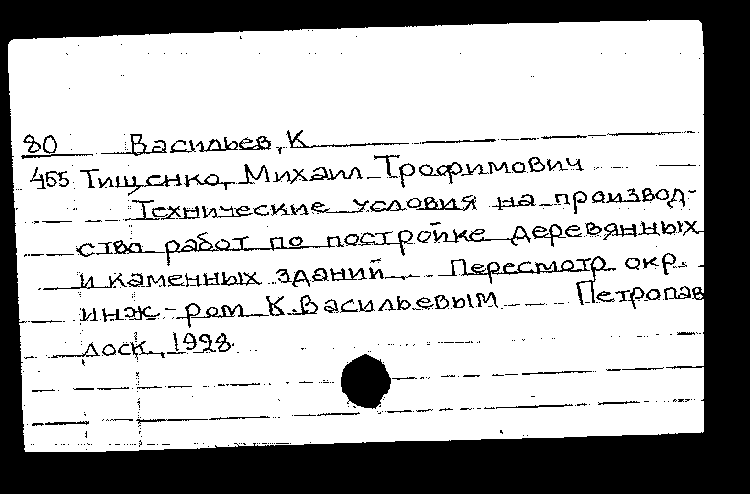 80 Васильев, К
455 Тищенко, Михаил Трофимович
Технические условия на производ-
ство работ по постройке деревянных
и каменных зданий. Пересмотр окр.
инж-ром К.Васильевым Петропав
лоск., 1998.